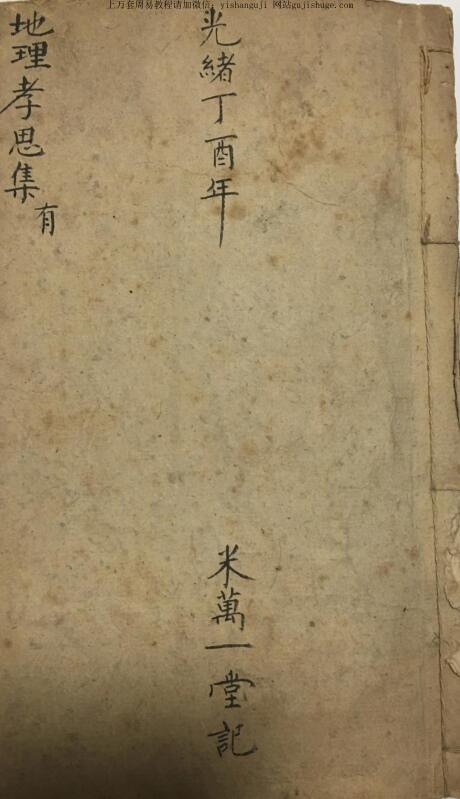 上万套周易教程请加微信：yishanguji 网站gujishuge.com
光緒丁酉年
米萬一堂記
地理孝思集 有